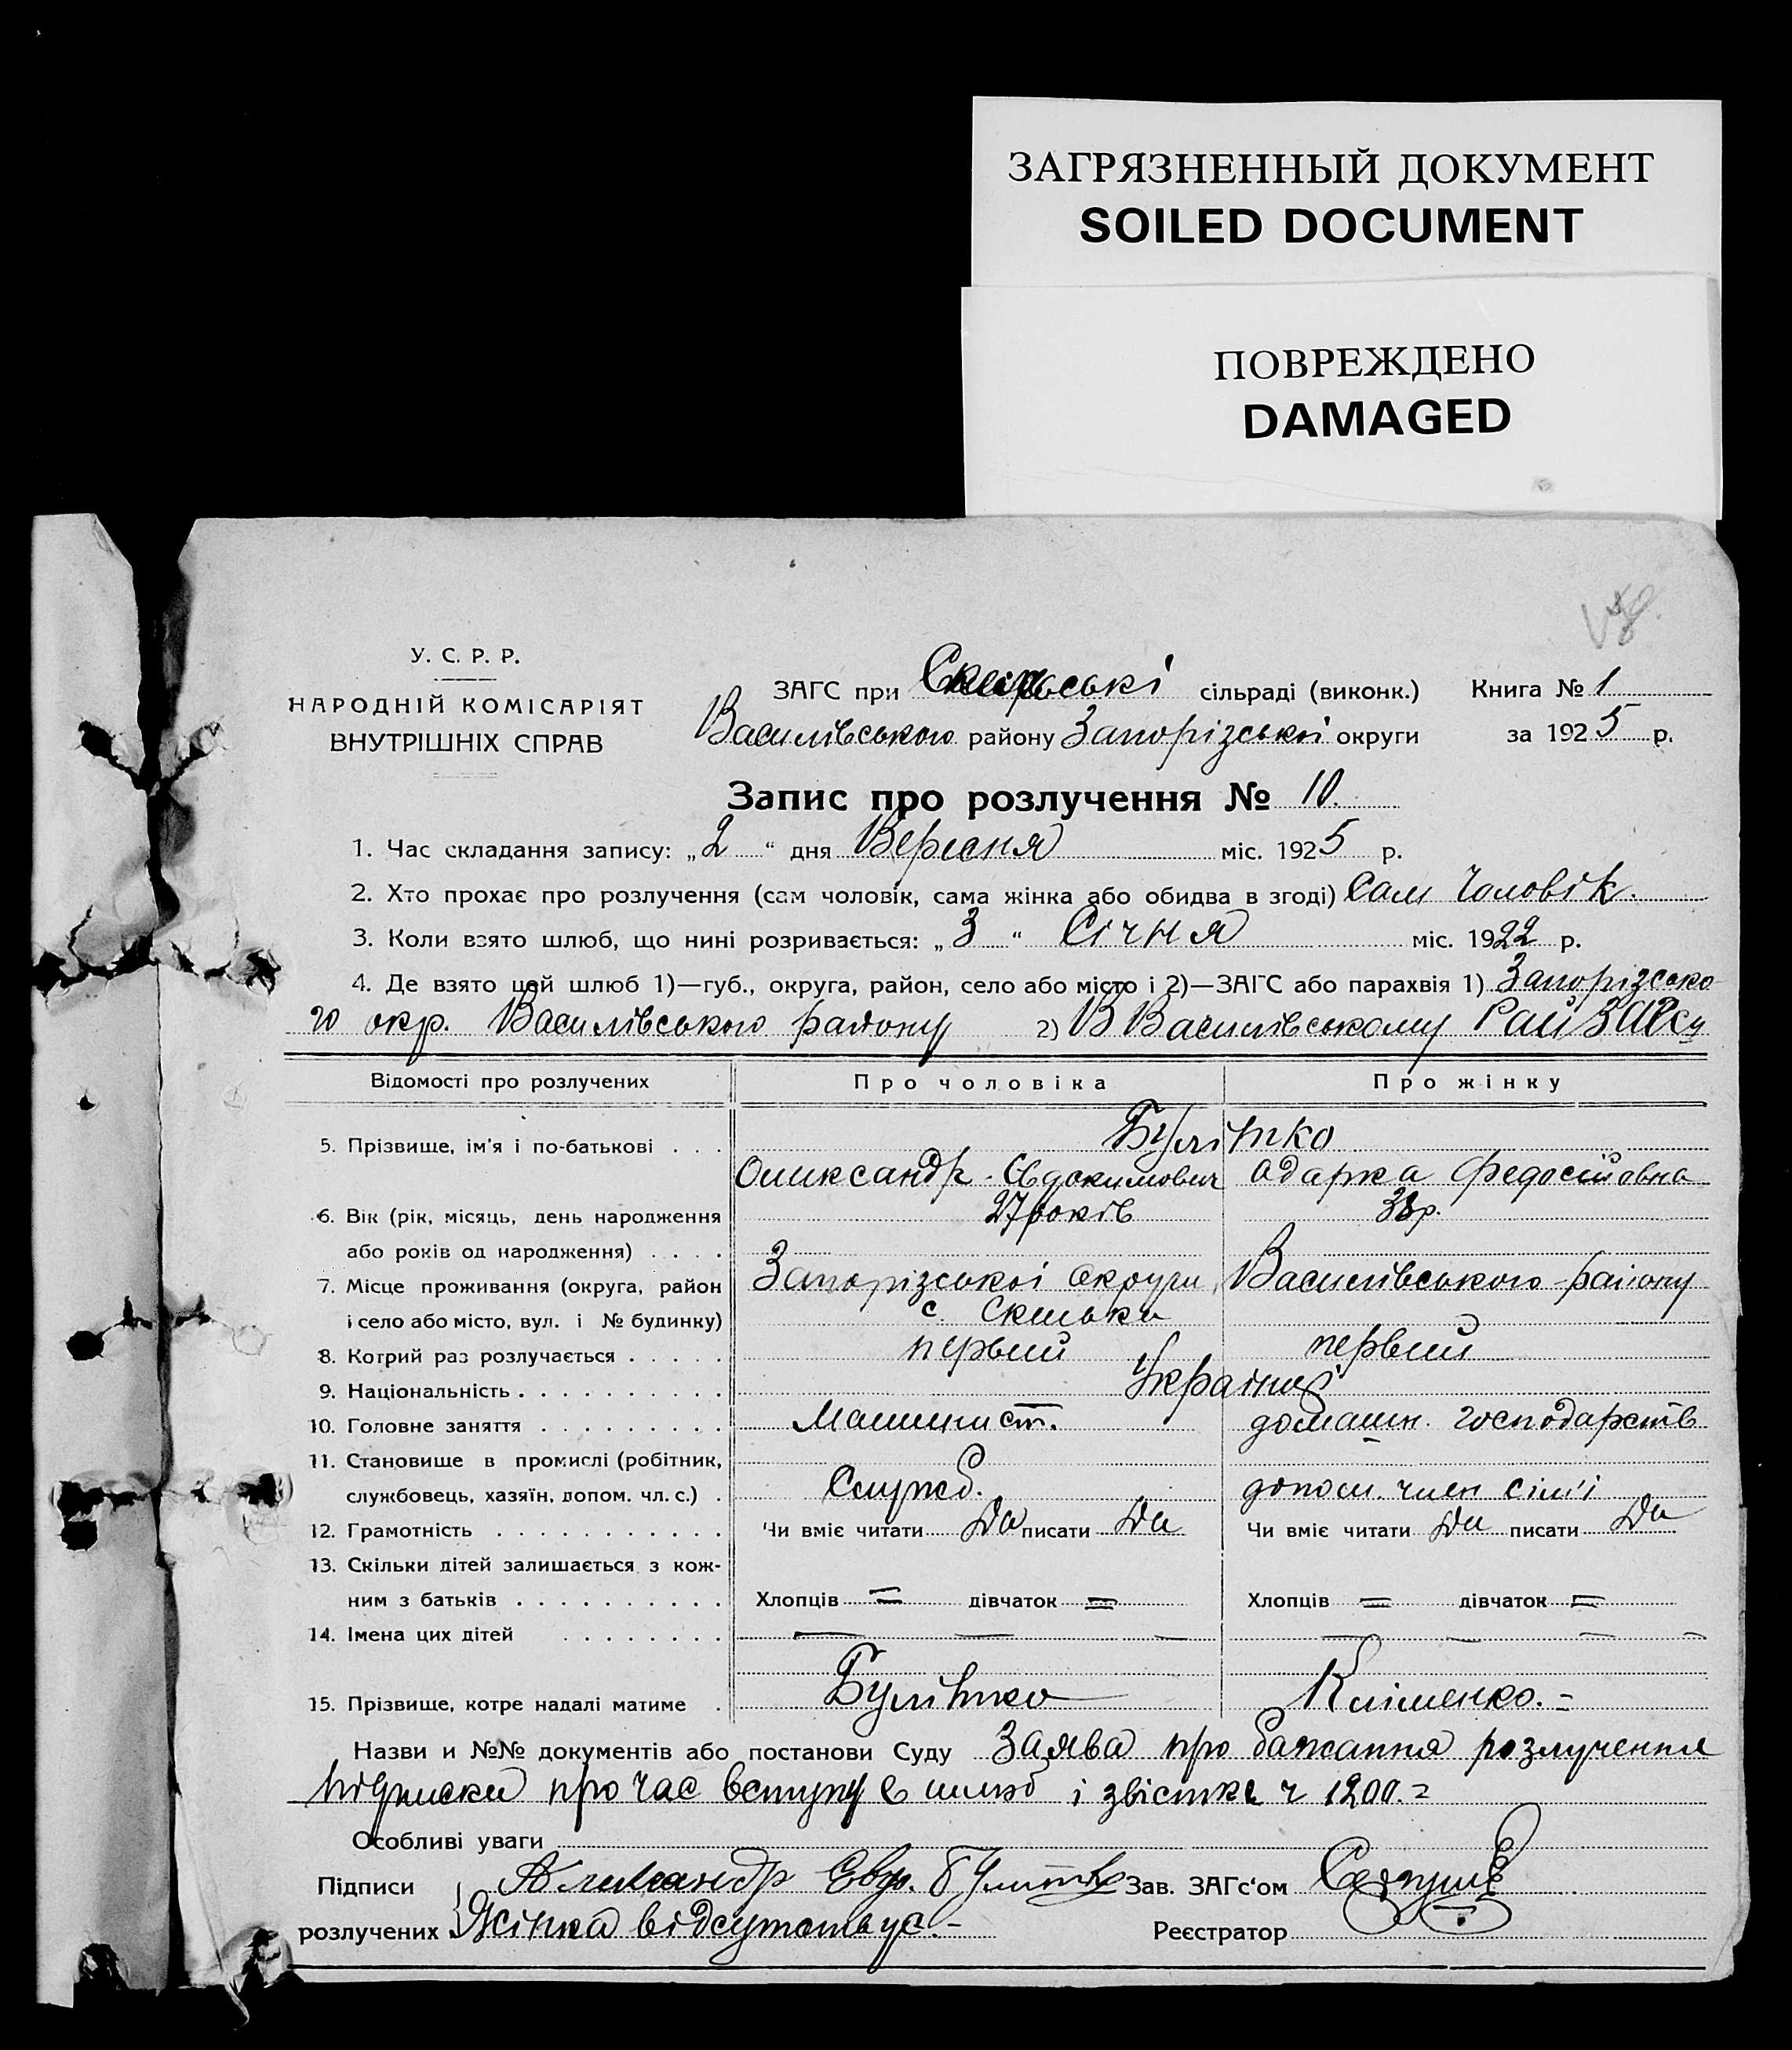 ЗАГРЯЗНЕННЫЙ ДОКУМЕНТ
SOILED DOCUMENT
ПОВРЕЖДЕНО
DAMAGED
У. С. Р. Р.
НАРОДНІЙ КОМІСАРІЯТ
ВНУТРІШНІХ СПРАВ
ЗАГС при сільраді (виконк.) Книга № 1
Василівського району Запорізськоі округи за 1925 р.
Запис про розлучення № 10.
1. Час складання запису: „2“ дня Вересня міс. 1925 р.
2. Хто прохає про розлучення (сам чоловік, сама жінка або обидва в згоді) Сам Чоловік.
3. Коли взято шлюб, що нині розривається: „3“ Січня міс. 1922 р.
4. Де взято цей шлюб 1)—губ., округа, район, село або місто і 2)—ЗАГС або парахвія 1) Запорізсько
го окр. Василівського району 2) В Василівському РайЗАГСу
Відомості про розлучених Про чоловіка Про жінку
5. Прізвище, ім'я і по-батькові . . . Булітко
Олександр Євдокимович Одарка Федосіївна
6. Вік (рік, місяць, день народження 27 років 38 р.
або років од народження) . . . .
7. Місце проживання (округа, район Запорізськоі Округи, Василівського району
і село або місто, вул. і № будинку) с. Скельки
8. Котрий раз розлучається . . . . . первий первий
9. Національність . . . . . . . . . . Украінці
10. Головне заняття . . . . . . . . . Машинист. домашн. господарств
11. Становище в промислі (робітник,
службовець, хазяїн, допом. чл. с.) . Служб. допом. член сім'і
12. Грамотність . . . . . . . . . . . Чи вміє читати Да писати Да Чи вміє читати Да писати Да
13. Скільки дітей залишається з кож-
ним з батьків . . . . . . . . . . Хлопців = дівчаток = Хлопців = дівчаток =
14. Імена цих дітей . . . . . . . . — — — — — — —
15. Прізвище, котре надалі матиме . Булітко Кліменко. =
Назви и №№ документів або постанови Суду Заява про бажання розлучення
підписка про час вступу в шлюб і звістка ч 1200. =
Особливі уваги
Підписи Александр Евд. Зав. ЗАГс'ом
розлучених Жінка відсутствує. – Реєстратор